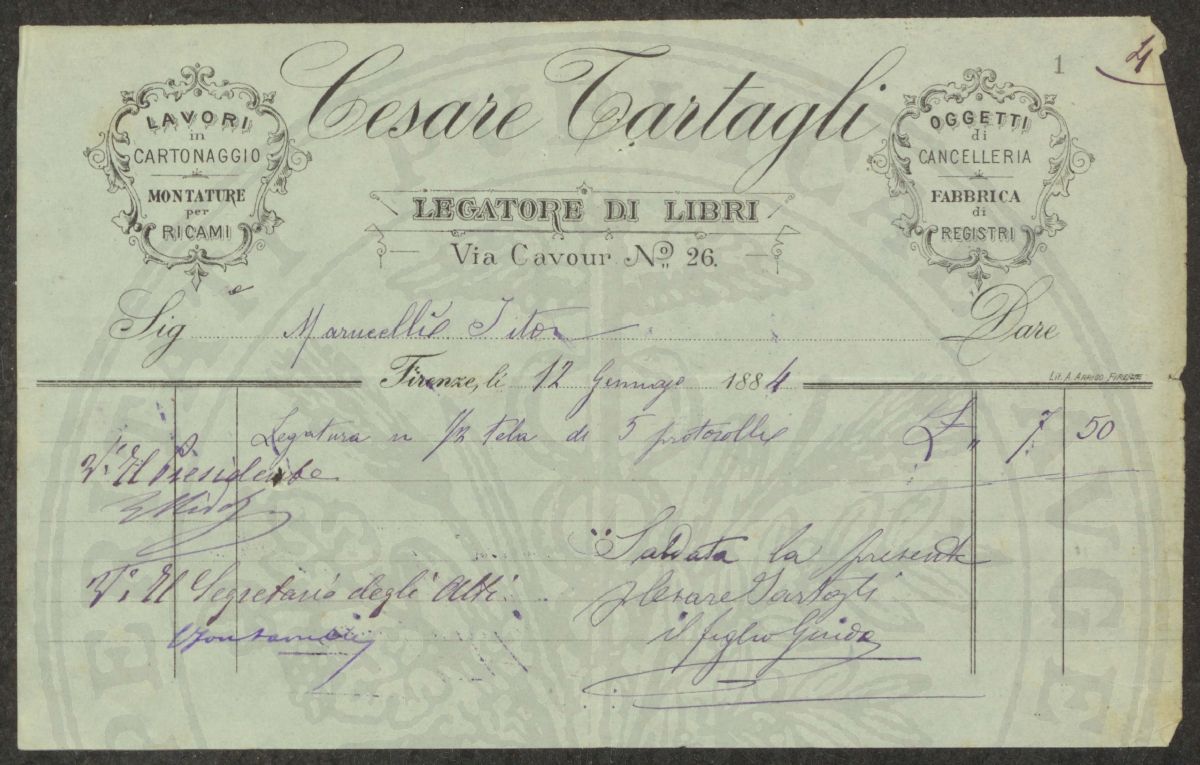 1
4
Cesare Tartagli
LAVORI
in
CARTONAGGIO
MONTATURE
per
RICAMI
LEGATORE DI LIBRI
Via Cavour Nº 26.
OGGETTI
di
CANCELLERIA
FABBRICA
di
REGISTRI
Sig Dare
Firenze, li 12 Gennajo 1884
Lit. A. Arrigo-Firenze
Legatura n 1/2 tela di 5 protocolli £ 7 50
Vº Il Presidente
Saldata la presente
p Cesare Tartagli
il figlio Guido
Vº Il Segretario degli Atti